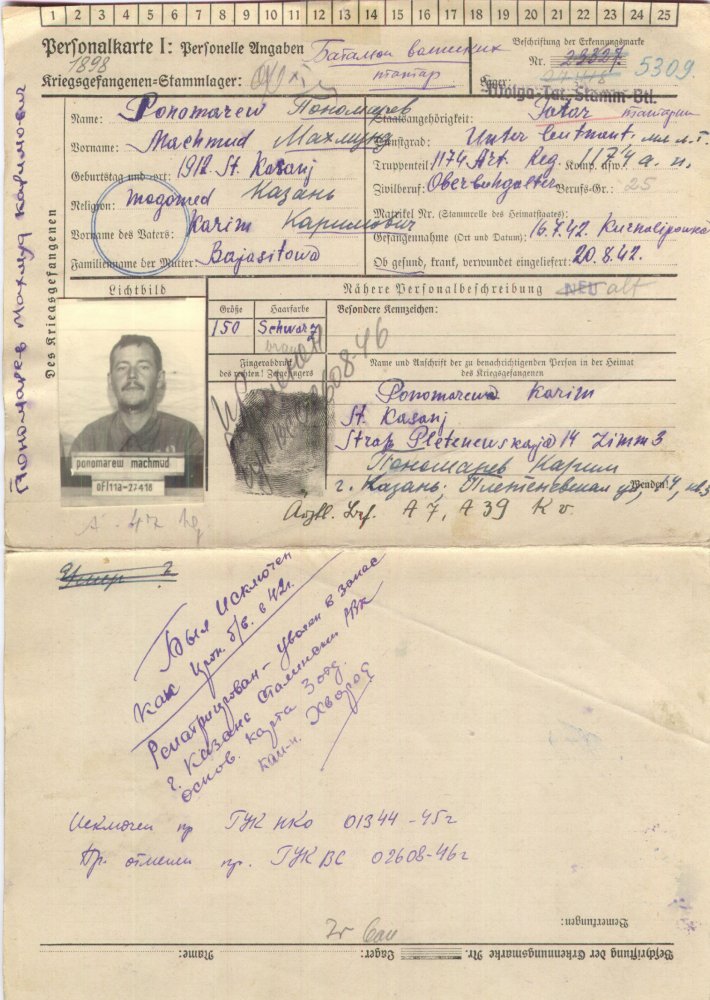 1 2 3 4 5 6 7 8 9 10 11 12 13 14 15 16 17 18 19 20 21 22 23 24 25
Personalkarte I: Personelle Angaben
Батальон волжских
татар
Beschriftung der Erkennungsmarke
Nr. 23327.
1898
Kriegsgefangenen-Stammlager:
Lager:
5309.
Wolga-Tat. Stamm-Btl.
Des Kriegsgefangenen
Пономарев Махмуд Каримович
Name: Ponomarew Пономарев
Staatsangehörigkeit: Tatar татарин
Vorname: Machmud Махмуд
Dienstgrad: Unter leutnant. мл л-т.
Geburtstag und -ort: 1912. St. Kasanj
Truppenteil: 1174 Art. Reg. Komp. usw.: 1174 а. п.
Religion: mogomed Казань
Zivilberuf: Oberbuhgalter Berufs-Gr.: 25
Vorname des Vaters: Karim Каримович
Matrikel Nr. (Stammrolle des Heimatstaates):
Gefangennahme (Ort und Datum): 16.7.42.
Familienname der Mutter: Bajasitowa
Ob gesund, krank, verwundet eingeliefert: 20.8.42.
Lichtbild
Nähere Personalbeschreibung
NEU alt
Größe
Haarfarbe
Besondere Kennzeichen:
150
Schwarz
braun
Fingerabdruck
des rechten! Zeigefingers
Исключен
02608-46
Name und Anschrift der zu benachrichtigenden Person in der Heimat
des Kriegsgefangenen
Ponomarewa Karim
St. Kasanj
Straß Pletenewskaja 14 Zimm 3
Пономарев Карим
г. Казань. Плетеневская ул, 14, кв 3
Wenden!
ponomarew machmud
of/11a-27418
A 7, A 39 K v.
Умер
Был исключен
как проп. б/в. в 42г.
Репатриирован - уволен в запас
г. Казань Сталинский РВК
основ. карта 3 отд.
Исключен пр ГУК НКО 01344-45г
Пр. отменен пр. ГУК ВС 02608-46г
Bemerkungen:
Beschriftung der Erkennungsmarke Nr.
Lager:
Name: